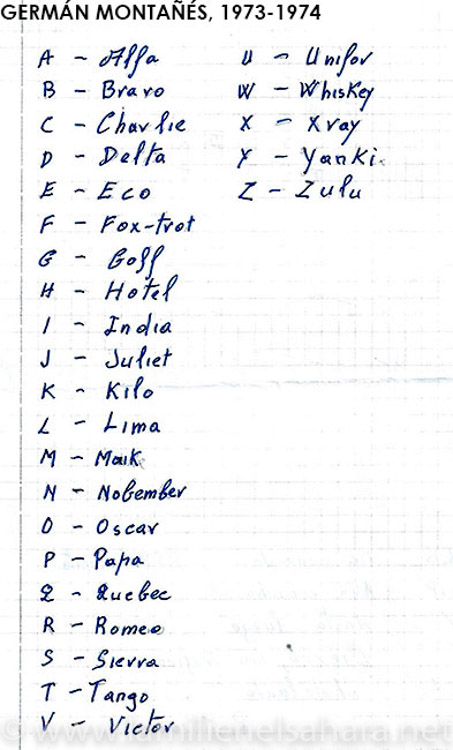 GERMÁN MONTAÑÉS, 1973-1974
A - Alfa
B - Bravo
C - Charlie
D - Delta
E - Eco
F - Fox-trot
G - Golf
H - Hotel
I - India
J - Juliet
K - Kilo
L - Lima
M - Maik
N - Nobember
O - Oscar
P - Papa
Q - Quebec
R - Romeo
S - Sierra
T - Tango
V - Victor
U - Unifor
W - Whiskey
X - Xray
Y - Yanki
Z - Zulu
© www.familienelsahara.net